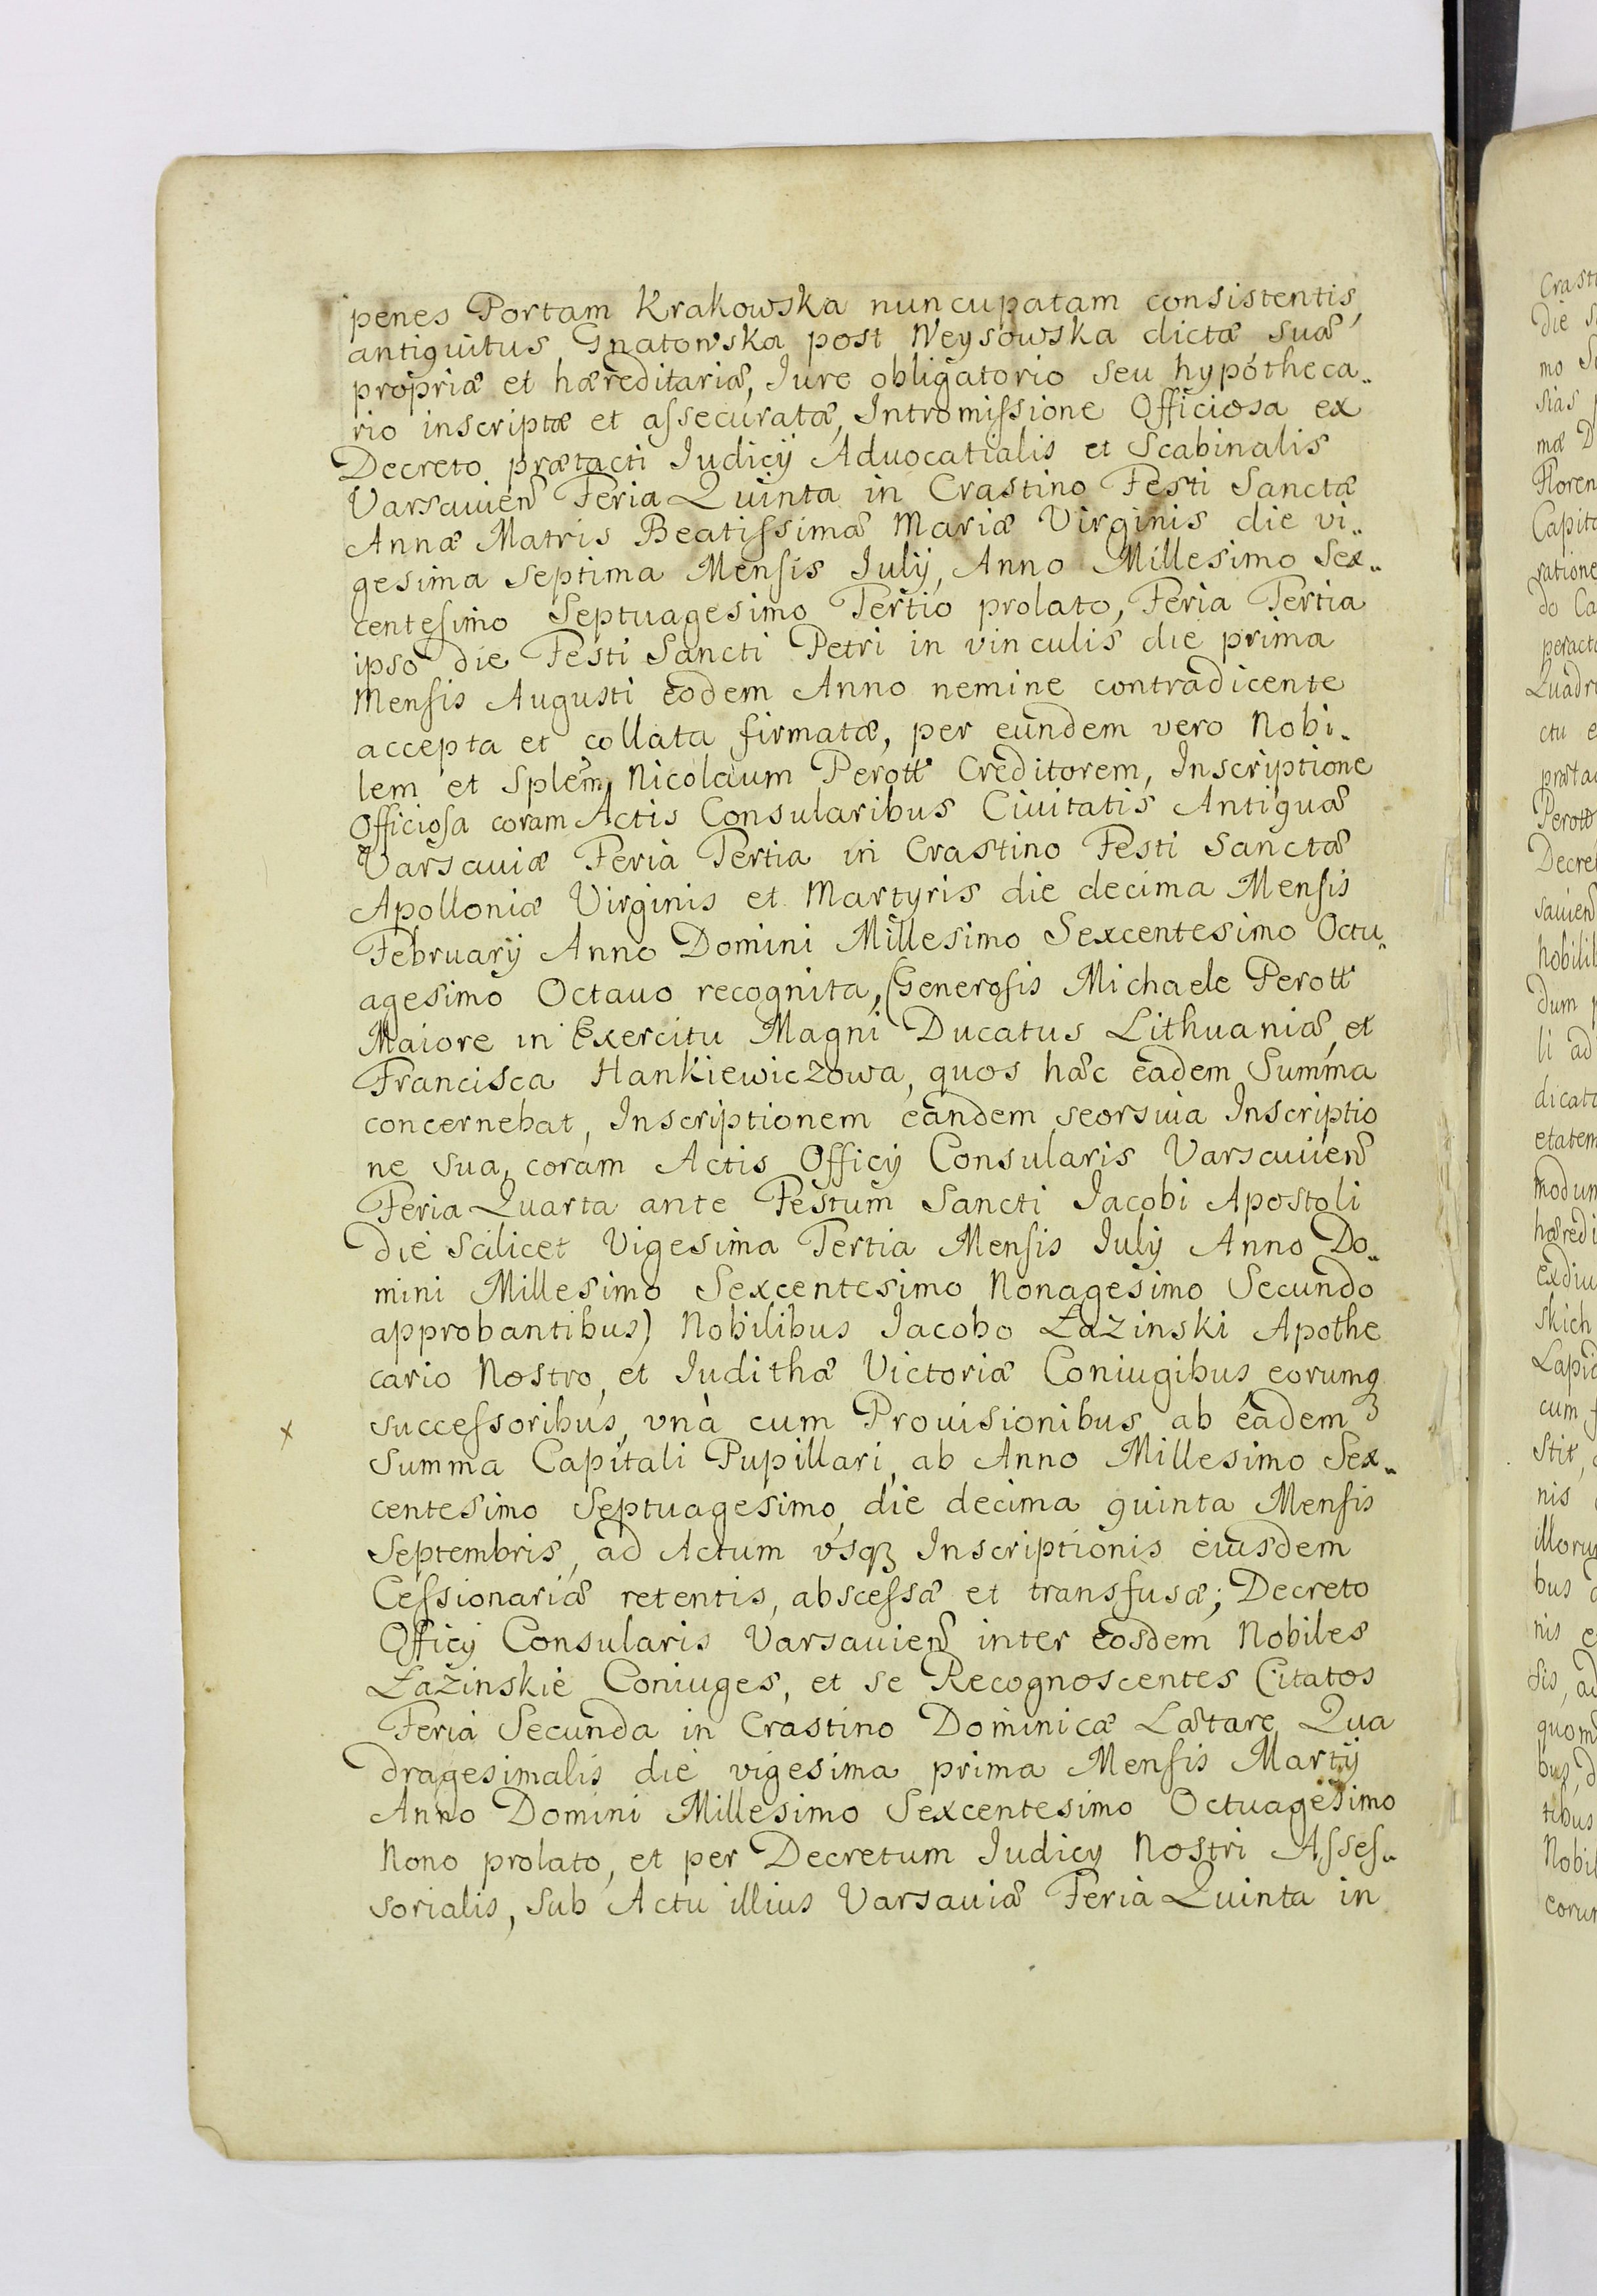 penes Portam Krakowska nuncupatam consistentis,
antiquitus Gnatowska post Weysowska dictæ suæ
propriæ et hæreditariæ, Iure obligatorio seu hypotheca..
rio inscriptæ et aſsecuratæ, Intromiſsione Officiosa ex
Decreto prætacti Iudicÿ Aduocatialis et Scabinalis
Varsauien Feria Quinta in Crastino Festi Sanctæ
Annæ Matris Beatiſsimæ Mariæ Virginis die vi..
gesima septima Menſis Iulÿ, Anno Millesimo Sex..
centeſimo Septuagesimo Tertio prolato, Feria Tertia
ipso die Festi Sancti Petri in vinculis die prima
Menſis Augusti eodem Anno nemine contradicente
accepta et collata firmatæ, per eundem vero Nobi-
lem et Splem Nicolaum Perott Creditorem, Inscriptione
Officioſa coram Actis Consularibus Ciuitatis Antiquæ
Varsauiæ Feria Tertia in Crastino Festi Sanctæ
Apolloniæ Virginis et Martyris die decima Menſis
Februarÿ Anno Domini Millesimo Sexcentesimo Octu..
agesimo Octauo recognita, (Generoſis Michaele Perott
Maiore in Exercitu Magni Ducatus Lithuaniæ, et
Francisca Hankiewiczowa, quos hæc eadem Summa
concernebat, Inscriptionem eandem seorsiua Inscriptio
ne sua, coram Actis Officÿ Consularis Varsauien
Feria Quarta ante Festum Sancti Iacobi Apostoli
die scilicet Vigesima Tertia Menſis Iulÿ Anno Do..
mini Millesimo Sexcentesimo Nonagesimo Secundo
approbantibus) Nobilibus Iacobo Łazinski Apothe
cario Nostro, et Iudithæ Victoriæ Coniugibus eorumqꝫ
succeſsoribus, vnà cum Prouisionibus ab eadem
x
Summa Capitali Pupillari, ab Anno Millesimo Sex..
centesimo Septuagesimo, die decima quinta Menſis
Septembris, ad Actum vsqꝫ Inscriptionis eiusdem
Ceſsionariæ retentis, absceſsæ et transfusæ; Decreto
Officÿ Consularis Varsauien inter eosdem Nobiles
Łażinskie Coniuges, et se Recognoscentes Citatos
Feria Secunda in Crastino Dominicæ Lætare Qua
dragesimalis die vigesima prima Menſis Martÿ
Anno Domini Millesimo Sexcentesimo Octuagesimo
Nono prolato, et per Decretum Iudicÿ Nostri Aſseſ..
sorialis, sub Actu illius Varsauiæ Feria Quinta in